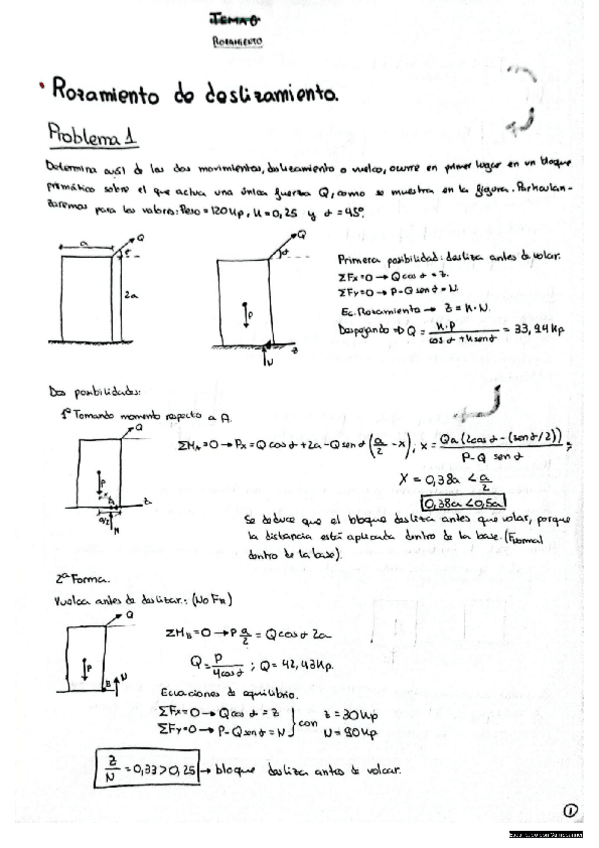 TEMA 8
ROZAMIENTO
Rozamiento de deslizamiento.
Problema 1
Determina cuál de los dos movimientos, deslizamiento o vuelco, ocurre en primer lugar en un bloque
prismático sobre el que actúa una única fuerza Q, como se muestra en la figura. Particulari-
zaremos para los valores: Peso = 120 Kp, μ = 0,25 y α = 45º.
a
Q
α
2a
Q
α
P
N
Z
Primera posibilidad: desliza antes de volcar.
ΣFx=0 → Q cos α = Z.
ΣFy=0 → P-Q sen α = N.
Ec. Rozamiento → Z = μ·N.
Despejando ⇒ Q = μ·P / (cos α + μ sen α) = 33,94 Kp
Dos posibilidades:
1º Tomando momento respecto a A.
Q
P
x
a/2
N
Z
ΣM_A=0 → Px = Q cos α + 2a - Q sen α (a/2 - x); x = Qa (2cos α - (sen α/2)) / (P - Q sen α);
X = 0,38a < a/2
0,38a < 0,5a
Se deduce que el bloque desliza antes que volcar, porque
la distancia está aplicada dentro de la base. (F normal
dentro de la base).
2ª Forma.
Vuelca antes de deslizar: (No FR)
Q
P
B
N
ΣM_B=0 → P a/2 = Q cos α 2a
Q = P / (4 cos α) ; Q = 42,43 Kp.
Ecuaciones de equilibrio.
ΣFx=0 → Q cos α = Z
ΣFy=0 → P - Q sen α = N
con
Z = 30 Kp
N = 90 Kp
Z/N = 0,33 > 0,25 → bloque desliza antes de volcar.
1